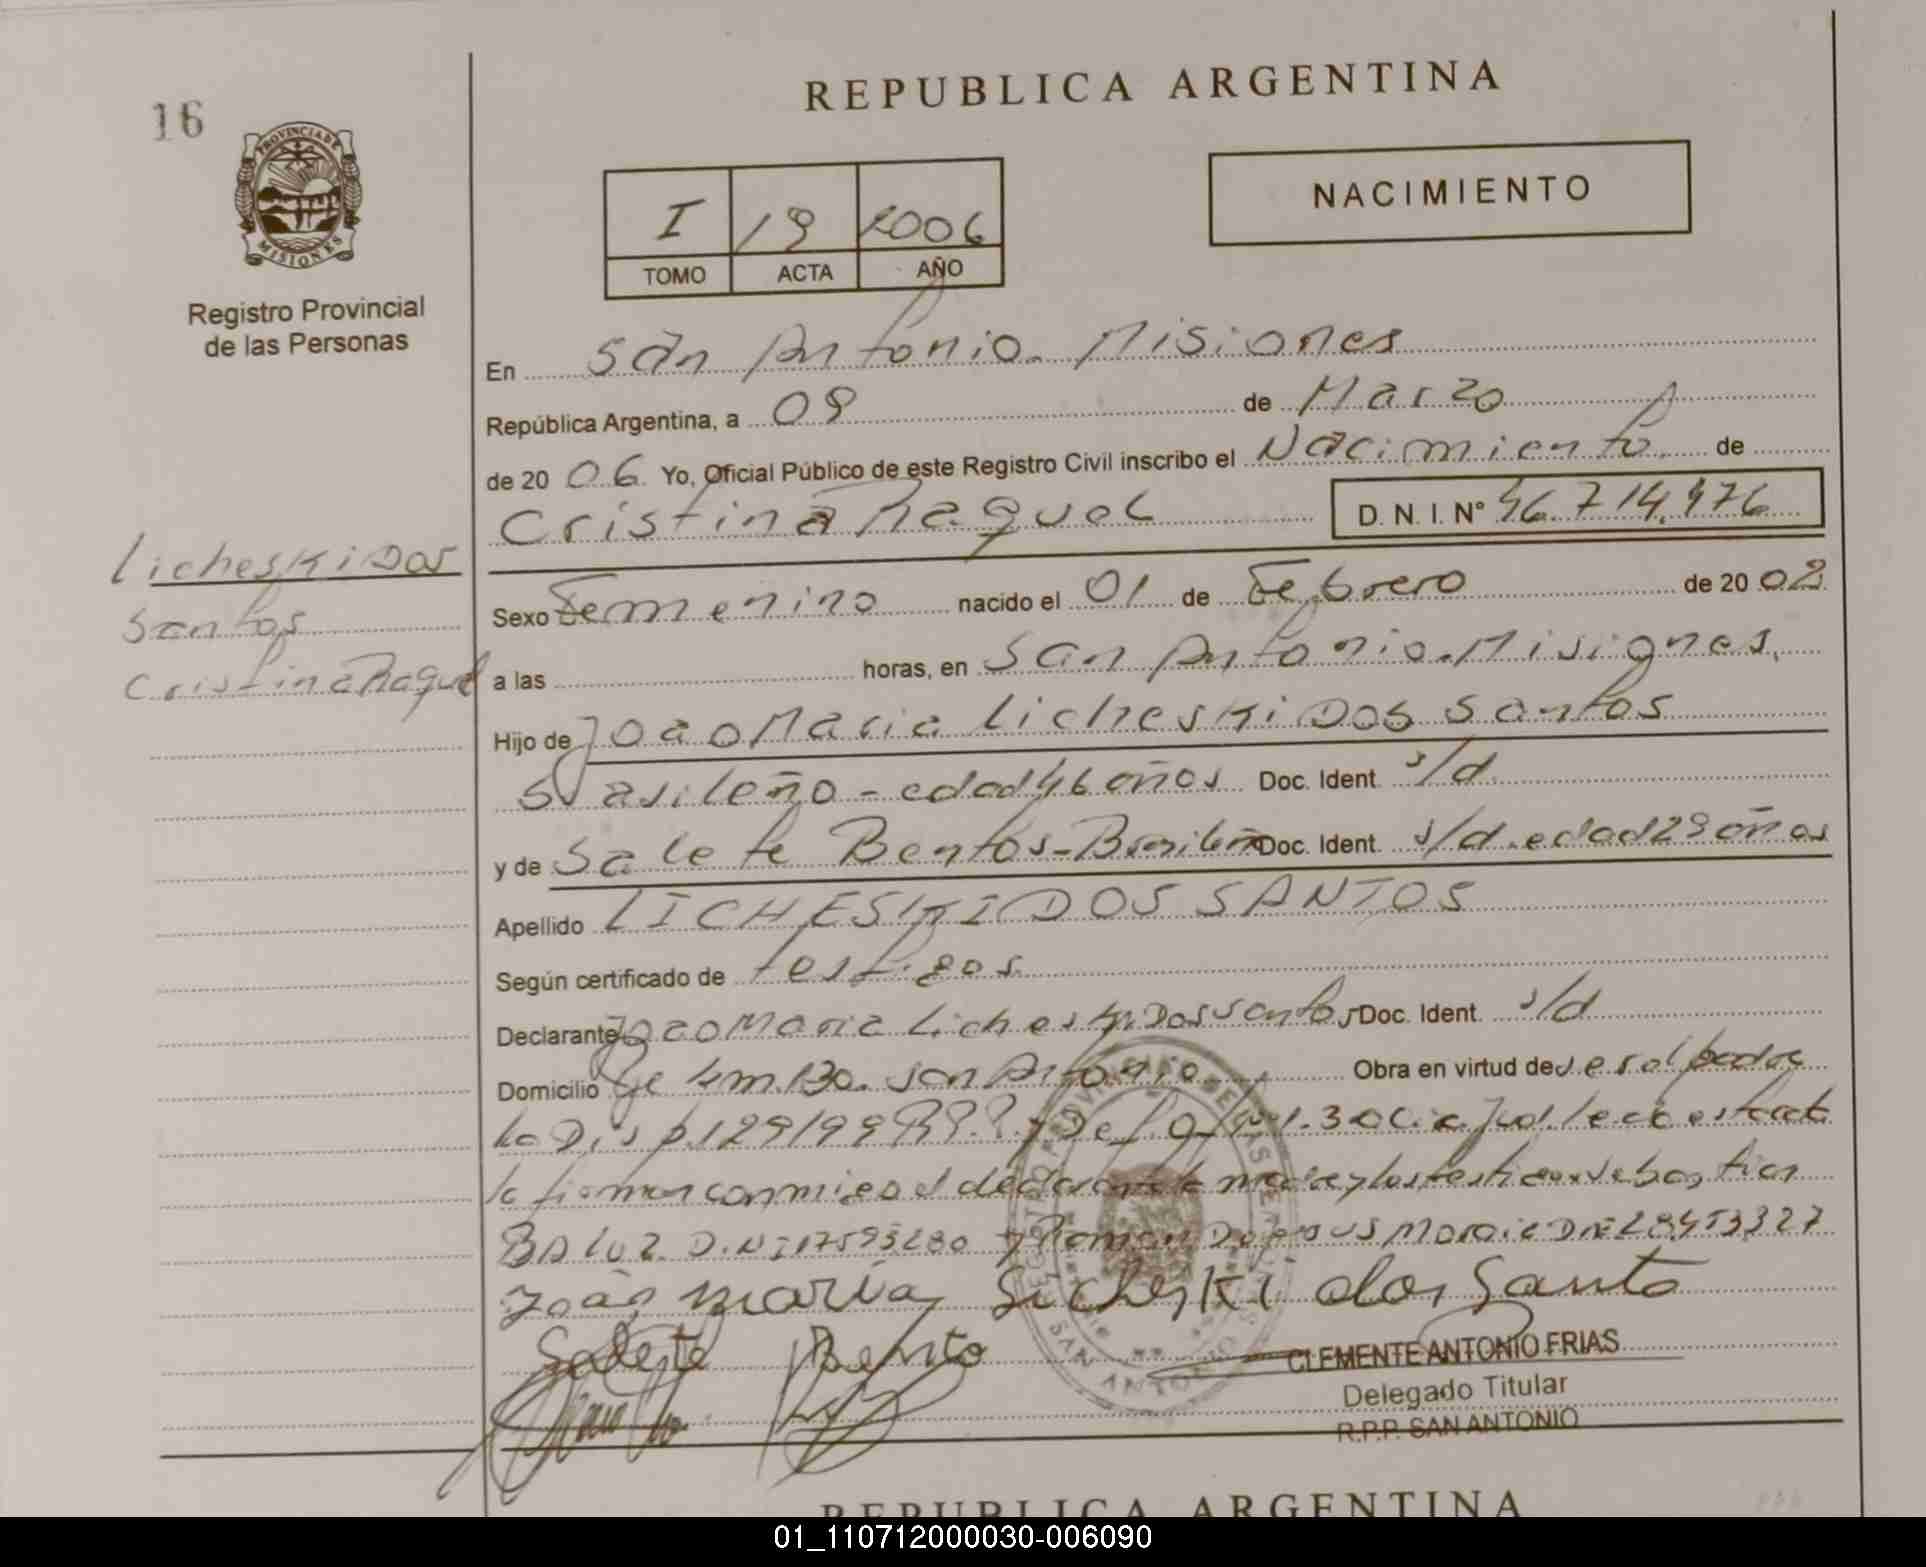 REPUBLICA ARGENTINA
16
PROVINCIA DE
MISIONES
Registro Provincial
de las Personas
I 19 2006
TOMO ACTA AÑO
NACIMIENTO
En San Antonio. Misiones
República Argentina, a 09 de Marzo
de 2006 Yo, Oficial Público de este Registro Civil inscribo el Nacimiento de
Cristina Raquel D. N. I. N° 46.714.476
Licheski Dos
Santos
Cristina Raquel
Sexo Femenino nacido el 01 de Febrero de 2002
a las horas, en San Antonio. Misiones.
Hijo de Joao Maria Licheski Dos Santos
Brasileño - edad 46 años Doc. Ident. s/d.
y de Salete Bentos - Brasileña Doc. Ident. s/d. edad 29 años
Apellido LICHESKI DOS SANTOS
Según certificado de testigos
Declarante Joao Maria Licheski Dos santos Doc. Ident. s/d
Domicilio km 130. San Antonio Obra en virtud de ser el padre
la Disp. 129/99 R.P.P. y Leida esta acta
la firman conmigo el declarante la madre y los testigos Sebastian
D.N.I 17593280 y Roman De jesus Maria DNI 28453327
João maria Licheski dos Santo
Salete Bento
CLEMENTE ANTONIO FRIAS
Delegado Titular
R.P.P. SAN ANTONIO
REPUBLICA ARGENTINA
01_110712000030-006090